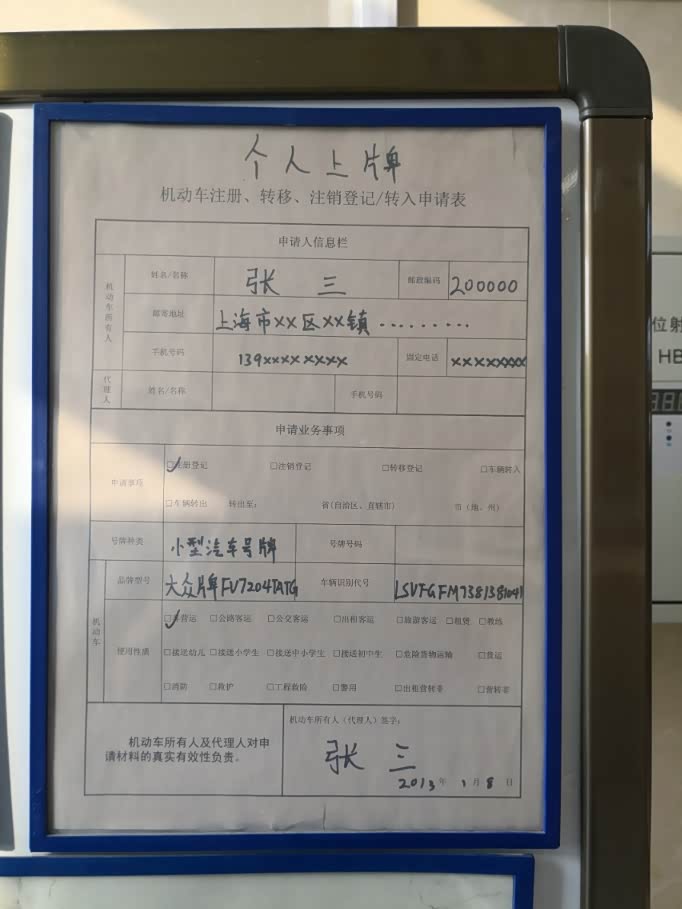 个人上牌
机动车注册、转移、注销登记/转入申请表
申请人信息栏
机动车所有人
姓名/名称 张 三 邮政编码 200000
邮寄地址 上海市XX区XX镇.........
手机号码 139xxxxxxxx 固定电话 xxxxxxxx
代理人 姓名/名称 手机号码
申请业务事项
申请事项 □注册登记 □注销登记 □转移登记 □车辆转入
□车辆转出 转出至: 省(自治区、直辖市) 市(地、州)
号牌种类 小型汽车号牌 号牌号码
机动车
品牌型号 大众牌FV7204TATG 车辆识别代号
使用性质 □非营运 □公路客运 □公交客运 □出租客运 □旅游客运 □租赁 □教练
□接送幼儿 □接送小学生 □接送中小学生 □接送初中生 □危险货物运输 □货运
□消防 □救护 □工程救险 □警用 □出租营转非 □营转非
机动车所有人及代理人对申
请材料的真实有效性负责。
机动车所有人(代理人)签字:
张 三
2013年 1月 8日
位射
HB